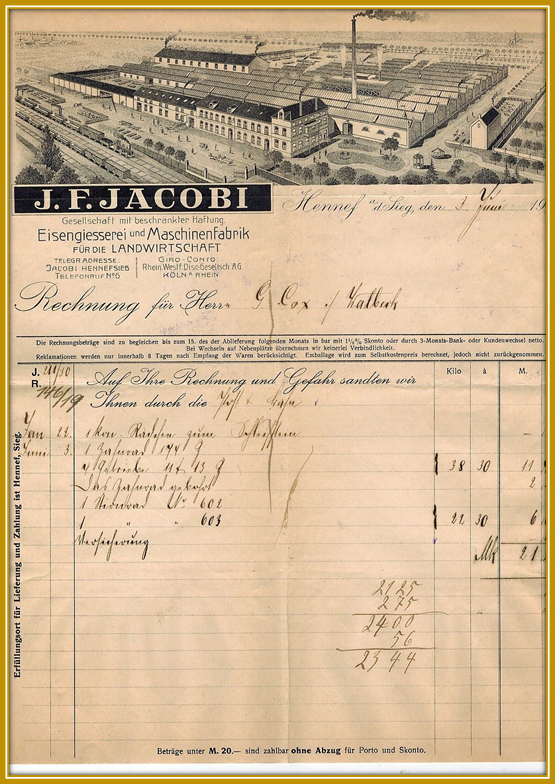 J. F. JACOBI
Gesellschaft mit beschränkter Haftung.
Eisengiesserei und Maschinenfabrik
FÜR DIE LANDWIRTSCHAFT
TELEGR. ADRESSE:
JACOBI HENNEFSIEG
TELEFONRUF No 6
GIRO-CONTO
Rhein. Westf. Disc. Gesellsch. A.G.
KÖLN A/RHEIN
Hennef a/d Sieg, den 3. Juni 19
Rechnung für Herrn G. Cox
Die Rechnungsbeträge sind zu begleichen bis zum 15. des der Ablieferung folgenden Monats in bar mit 1½% Skonto oder durch 3-Monats-Bank- oder Kundenwechsel netto.
Bei Wechseln auf Nebenplätze übernehmen wir keinerlei Verbindlichkeit.
Reklamationen werden nur innerhalb 8 Tagen nach Empfang der Waren berücksichtigt. Emballage wird zum Selbstkostenpreis berechnet, jedoch nicht zurückgenommen.
J.
R.
Kilo à M.
Auf Ihre Rechnung und Gefahr sandten wir
Ihnen durch die
Jan 22. 1
Juni 3. 1 Zahnrad
38 30 11
Das Zahnrad gebohrt 2
1 No 602
1 " " 603 22 30 6
Versicherung
Mk 21
2125
275
2400
56
2344
Erfüllungsort für Lieferung und Zahlung ist Hennef, Sieg.
Beträge unter M. 20,— sind zahlbar ohne Abzug für Porto und Skonto.